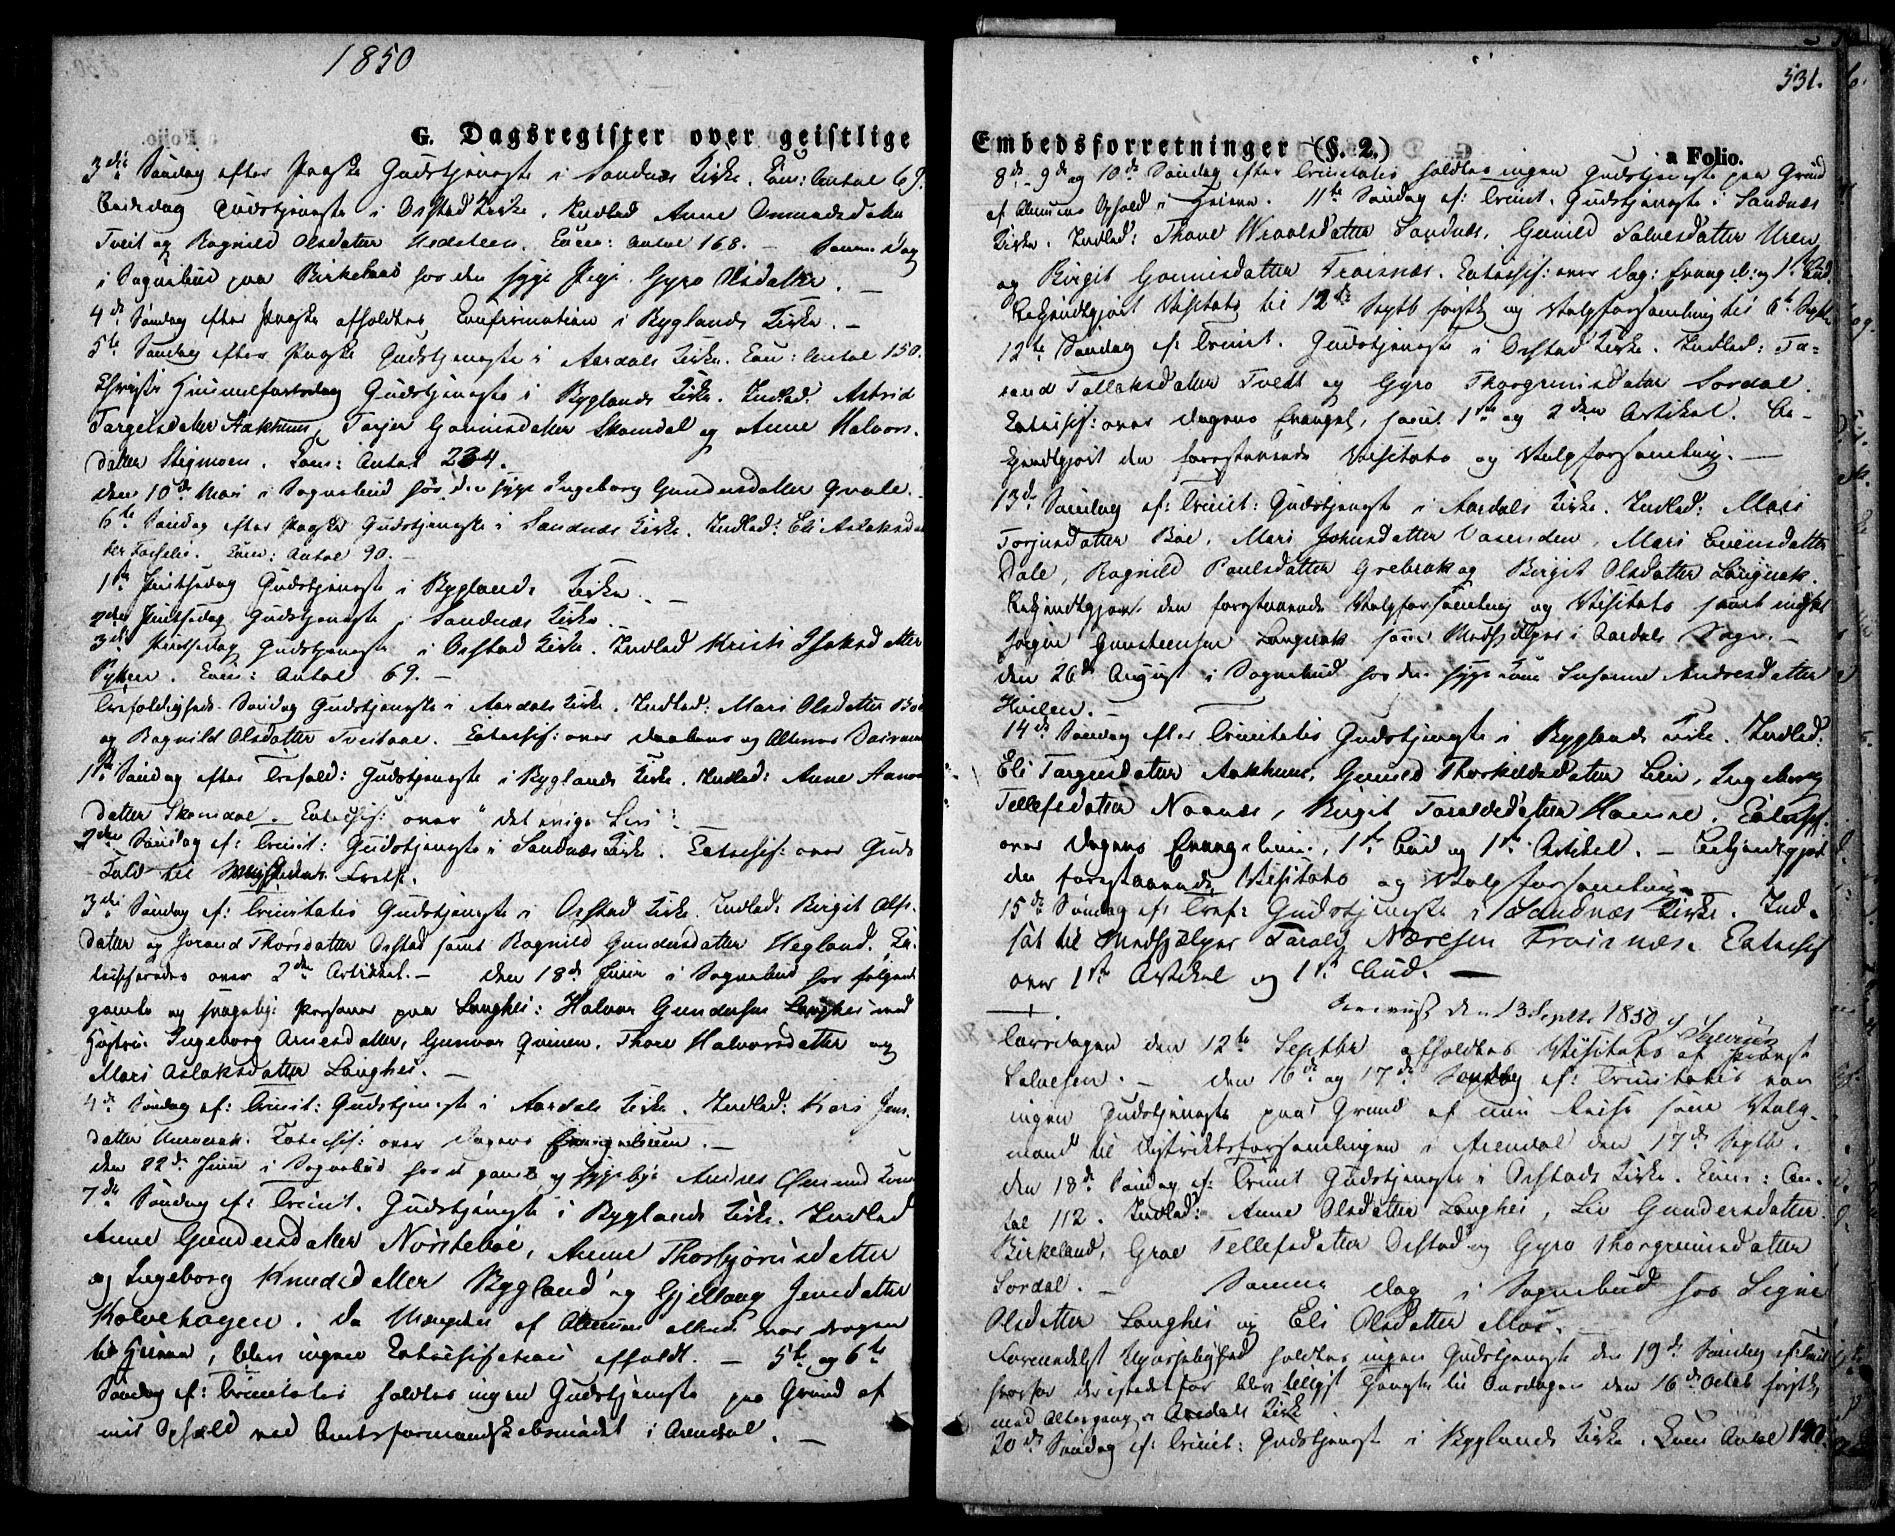 1850
G. Dagsregister over geistlige
3die Søndag efter Paaske Gudstjeneste i Sandnæs Kirke. Com: Antal 69.
Bededag Gudstjeneste i Østad Kirke. Indled Anne Osmundsdatter
Tveit og Ragnild Olsdatter Hodsteen. Com: Antal 168. – Samme Dag
i Sognebud paa Birkeland hos den syge Pige Gyro Olsdatter. –
4de Søndag efter Paaske afholdtes Confirmation i Byglands Kirke. –
5te Søndag efter Paaske Gudstjeneste i Aardals Kirke. Com: Antal 150.
Christi Himmelfartsdag Gudstjeneste i Byglands Kirke. Indled: Astrid
Targeisdatter Aakhuus, Tarjer Gonnisdatter Skomdal og Anne Halvors-
datter Stigmoen. Com: Antal 234.
den 10de Mai i Sognebud hos den syge Ingeborg Gundersdatter Qvale.
6te Søndag efter Paaske Gudstjeneste i Sandnæs Kirke. Indled: Eli Aslaksdat
ter. Com: Antal 90. –
1ste Pintsedag Gudstjeneste i Byglands Kirke. –
2den Pintsedag Gudstjeneste i Sandnæs Kirke. –
3die Pintsedag Gudstjeneste i Østad Kirke. Indled Kristi Isaksdatter
Com: Antal 69. –
Trefoldigheds-Søndag Gudstjeneste i Aardals Kirke. Indled: Mari Olsdatter Boe
og Ragnild Olsdatter Tveitaae. Catechis: over Daabens og Alterens
1ste Søndag efter Trefold: Gudstjeneste i Byglands Kirke. Indled: Anne
datter Skomdal. Catechis: over "det evige Liv".
2den Søndag ef: Trinit: Gudstjeneste i Sandnæs Kirke. Catechis: over Guds
Kald til Frelse.
3die Søndag ef: Trinitatis Gudstjeneste i Østad Kirke. Indled: Birgit Olfs-
datter og Jorand Thorsdatter Østad samt Ragnild Gundersdatter Hegland. Ca-
techiseredes over 2den Artikkel. – den 18de Juni i Sognebud hos følgende
gamle og svagelige Personer paa Langhei: Halvor Gundersen Langhei med
Hustru Ingeborg Arnesdatter, Gunvor Qvinen, Thore Halvorsdatter og
Mari Aslaksdatter Langhei. –
4de Søndag ef: Trinit: Gudstjeneste i Aardals Kirke. Indled: Kari Jens-
datter. Catechis: over Dagens Evangelium. –
den 22de Juni i Sognebud hos den gamle og sygelige Anders
7de Søndag ef: Trinit. Gudstjeneste i Byglands Kirke. Indled
Anne Gundersdatter Norstebøe, Anne Thorbjørnsdatter
og Ingeborg Knudsdatter Bygland og Gjellaug Jensdatter
Kalvehagen. Da Mængden af Almuen allerede var dragen
til Heien, blev ingen Catechisation afholdt. – 5te og 6te
Søndag ef: Trinitatis holdtes ingen Gudstjeneste paa Grund af
mit Ophold ved Amtsformandskabsmødet i Arendal. –
531.
Embedsforretninger (§. 2.)
a Folio.
8de, 9de og 10de Søndag efter Trinitatis holdtes ingen Gudstjeneste paa Grund
af Almuens Ophold i Heiene. 11te Søndag ef: Trinit. Gudstjeneste i Sandnæs
Kirke. Indled: Thone Wraalsdatter Sandnæs, Gunild Salvesdatter Uren
og Birgit Gonnisdatter Froisnæs. Catechis: over Dag: Evangel: og 1ste Bud.
Bekjendtgjort Visitats til 12te Septb førstk og Valgforsamling til 6te Septb.
12te Søndag ef: Trinit. Gudstjeneste i Østad Kirke. Indled: Ta-
rand Tallaksdatter Tvedt og Gyro Thorgrimsdatter Sordal.
Catechis: over Dagens Evangel, samt 1ste og 2den Artikel. Be-
kjendtgjort den forestaaende Visitats og Valgforsamling. –
13de Søndag ef: Trinit: Gudstjeneste i Aardals Kirke. Indled: Mari
Torjusdatter Boe, Mari Johnsdatter Vasenden, Mari Evensdatter
Dale, Ragnild Paulsdatter Grebrok og Birgit Olsdatter Langerak.
Bekjendtgjort den forestaaende Valgforsamling og Visitats samt indsat
Jørgen Gunsteensen Langerak som Medhjelper i Aardals Sogn. –
den 26de August i Sognebud hos den syge Kone Susanne Andersdatter
Hvilen. –
14de Søndag efter Trinitatis Gudstjeneste i Byglands Kirke. Indled:
Eli Targeisdatter Aakhuus, Gunild Thorkildsdatter Lien, Ingeborg
Tellefsdatter Naanæs, Birgit Taraldsdatter Hamre. Catechis:
over Dagens Evangelium, 1ste Bud og 1ste Artikel. – Bekjendtgjort
den forestaaende Visitats og Valgforsamling.
15de Søndag ef: Tref: Gudstjeneste i Sandnæs Kirke. Ind-
sat til Medhjælper Tarald Næresen Froisnæs. Catechis
over 1ste Artikel og 1ste Bud. –
den 13 Septbr 1850
Torsdagen den 12te Septbr afholdtes Visitats af Provst
Salvesen. – den 16de og 17de Søndag ef: Trinitatis var
ingen Gudstjeneste paa Grund af min Reise som Valg-
mand til Distriktsforsamlingen i Arendal den 17de Septbr.
den 18de Søndag ef: Trinit Gudstjeneste i Østads Kirke. Com: An-
tal 112. Indled: Anne Olsdatter Langhei, Liv Gundersdatter
Birkeland, Groe Tellefsdatter Østad og Gyro Thorgrimsdatter
Sordal. – Samme Dag i Sognebud hos Signe
Olsdatter Langhei og Eli Olsdatter Moe. –
Formedelst Upasselighed holdtes ingen Gudstjeneste den 19de Søndag ef: Trinit
hvorfor der istedetfor blev tillyst Tjeneste til Onsdagen den 16de Octob førstk
med Altergang i Aardals Kirke
20de Søndag ef: Trinit: Gudstjeneste i Byglands Kirke. Com Antal 190.